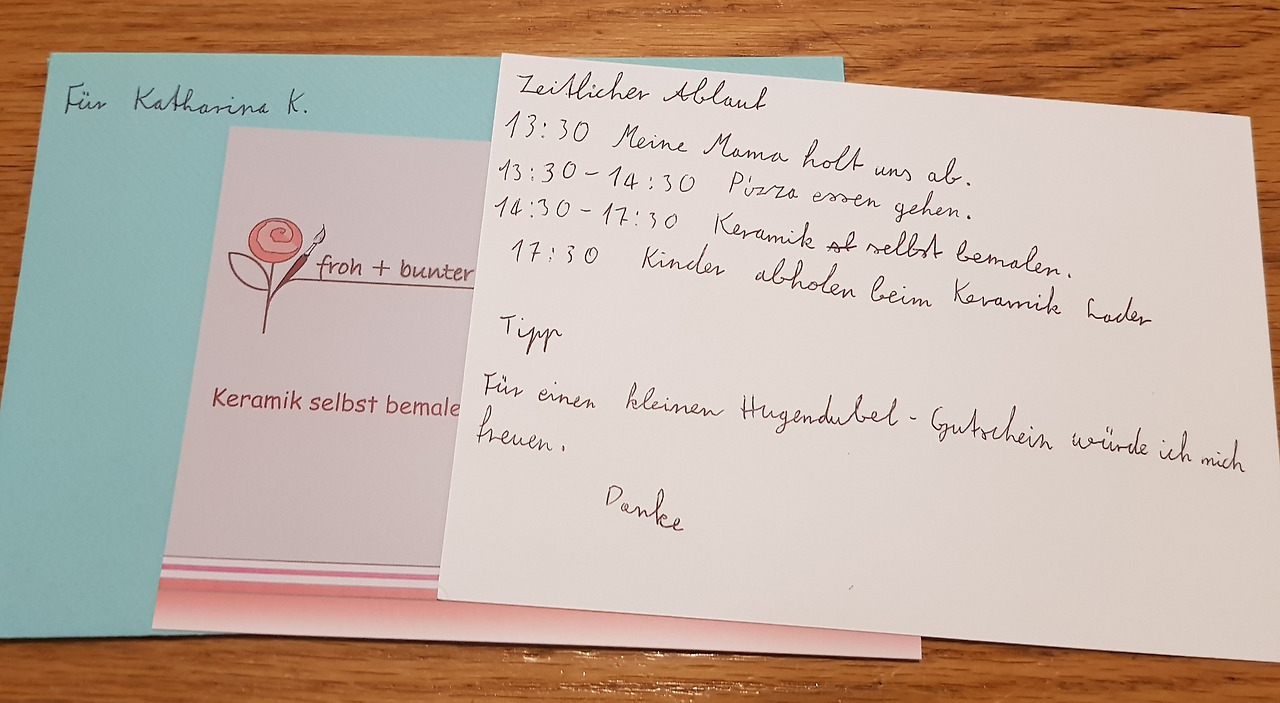 Für Katharina K.
froh + bunter
Keramik selbst bemale
Zeitlicher Ablauf
13:30 Meine Mama holt uns ab.
13:30-14:30 Pizza essen gehen.
14:30-17:30 Keramik sl selbst bemalen.
17:30 Kinder abholen beim Keramik Lader
Tipp
Für einen kleinen Hugendubel-Gutschein würde ich mich
freuen.
Danke